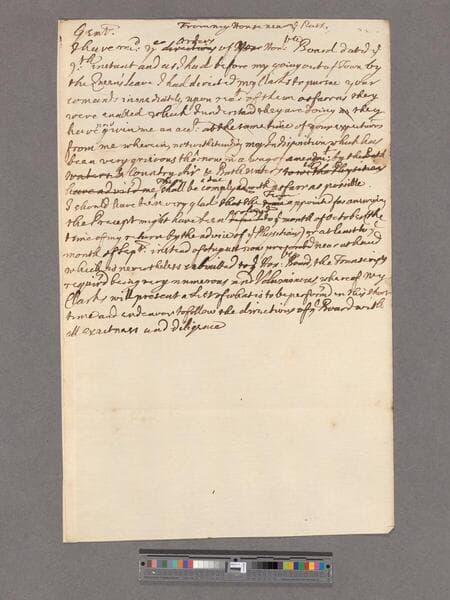 Gent. From my House near ye Bath.
I have recd. ye directions orders of Your Honble Board dated ye
9th instant and as I had before my going out of Town by
the Queen's leave I had directed my Clarks to pursue your
comands immediately upon rect. of them as far as they
were enabled which I understand they are doing as they
have given me an acct. at the same time of your expectations
from me wherein, notwithstanding my Indisposition which has
been very grievous tho now in a way of amendmt. by the Bath
Waters Country air & Bath Waters to wch. the Physitian
have advised me shall be complyed with as far as possible
I should have been very glad that the time appointed for answering
the Precept might have been ye month of October the
time of my return by the advice of ye Physitian, or at least by ye
month of Sept. instead of August now prefixed near at hand
which is nevertheless submitted to ye Honble Board, the Transcripts
required being very numerous and Voluminous whereof my
Clarks will present a List of what is to be performed in this short
time and endeavor to follow the directions of ye Board with
all exactness and diligence